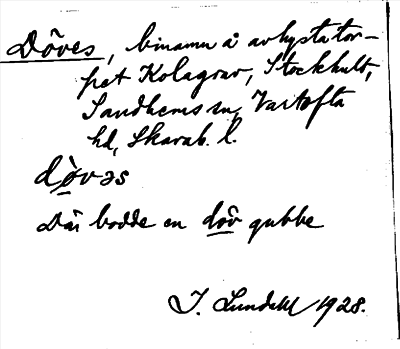 Döves, binamn å avhysta tor-
pet Kolagrav, Stockhult,
Sandhems sn, Vartofta
hd, Skarab. l.
dòvəs
Där bodde en döv gubbe
J. Lundell 1928.